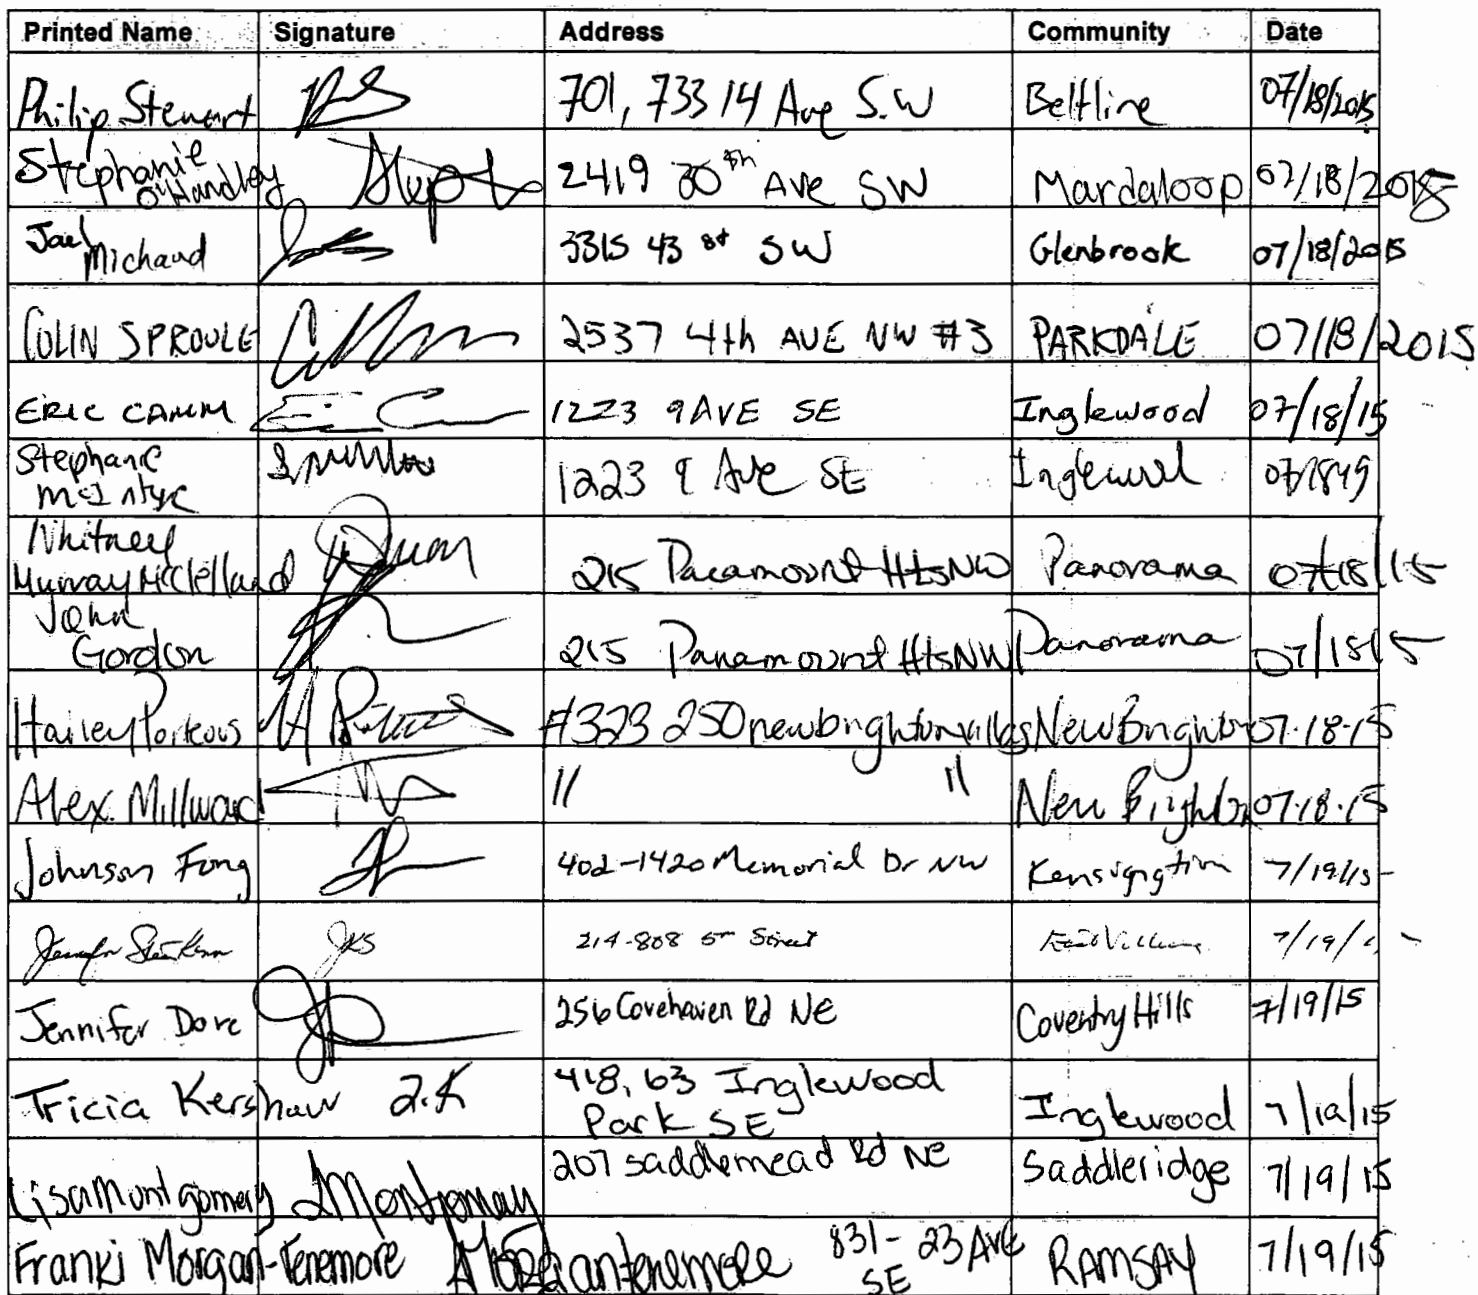 Printed Name Signature Address Community Date
Philip Stewart 701, 733 14 Ave S.W Beltline 07/18/2015
Stephanie O'Handley 2419 30th Ave SW Mardaloop 07/18/2015
Jael Michaud 3315 43 st SW Glenbrook 07/18/2015
COLIN SPROULE 2537 4th AVE NW #3 PARKDALE 07/18/2015
ERIC CAMM 1223 9 AVE SE Inglewood 07/18/15
Stephanie McIntyre 1223 9 Ave SE Inglewood
Whitney Murray McClelland 215 Panamount Hts NW Panorama 07/18/15
John Gordon 215 Panamount Hts NW Panorama 07/18/15
Hailey Porteous #323 250 newbrighton villas New Brighton 07-18-15
Alex Millward 11 11 New Brighton 07-18-15
Johnson Fong 402-1420 Memorial Dr NW Kensigngtion 7/19/15
JKS 214-808 5th Street 7/19/
Jennifer Dore 256 Covehaven Rd NE Coventry Hills 7/19/15
Tricia Kershaw 2.K 418, 63 Inglewood Park SE Inglewood 7/19/15
Lisa Montgomery LMontgomery 207 saddlemead Rd NE Saddleridge 7/19/15
Franki Morgan-Tenemore Morgantenemore 831- 23 Ave SE RAMSAY 7/19/15